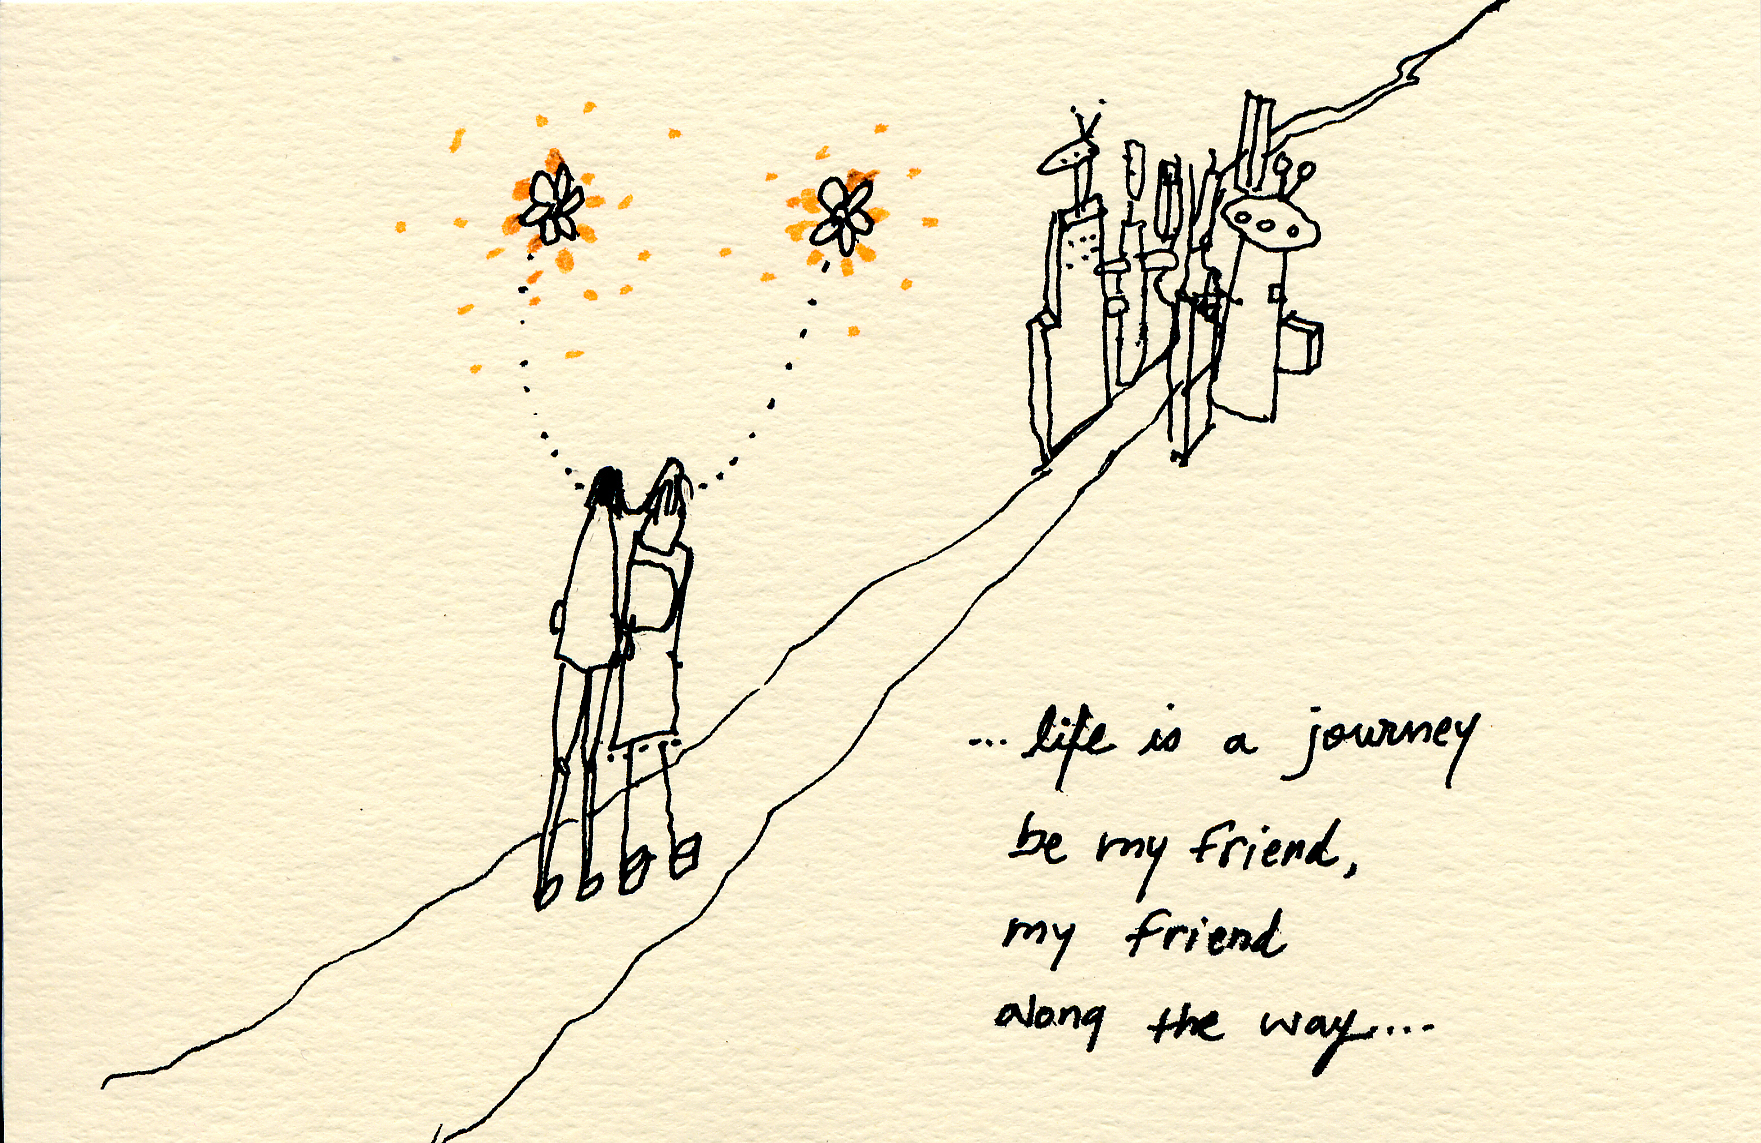 ...life is a journey
be my friend,
my friend
along the way....